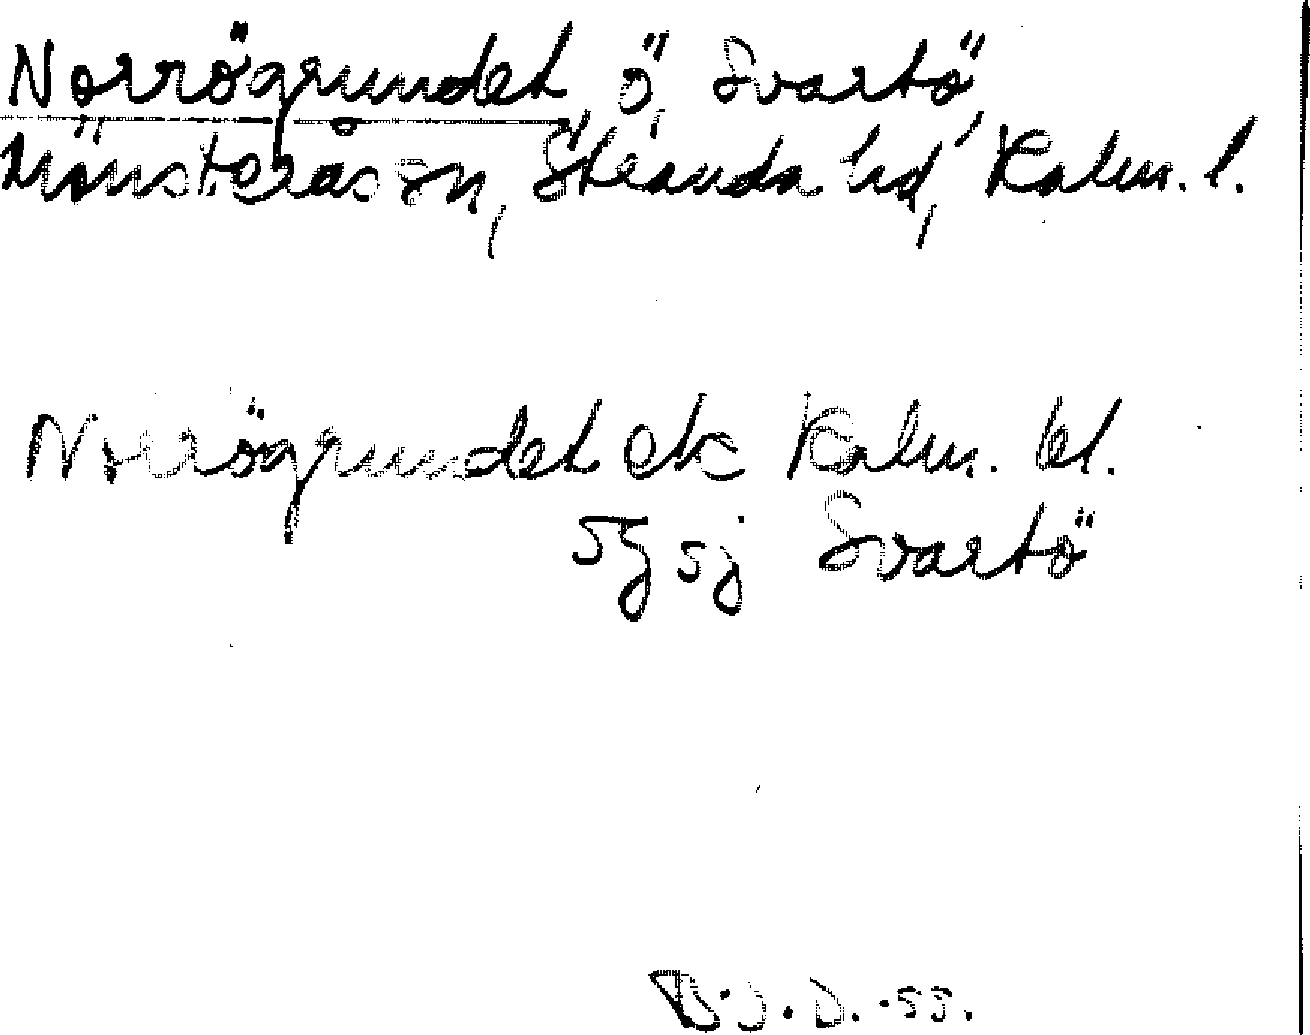 Norrögrundet, ö, Svartö,
Mönsterås sn, Stranda hd, Kalm. l.
Norrögrundet ek Kalm. bl.
Svartö
B.J.D. -55.